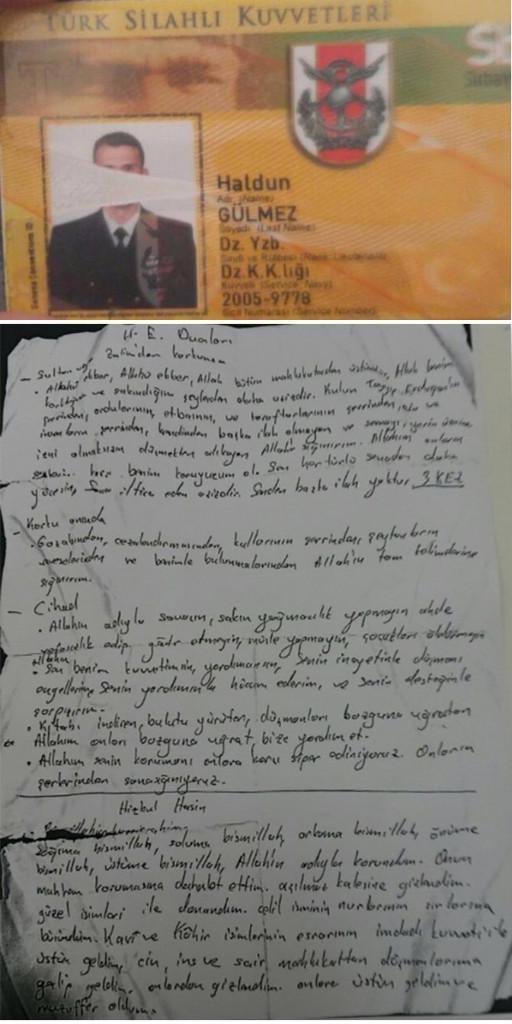 TÜRK SİLAHLI KUVVETLERİ
Haldun
Adı (Name)
GÜLMEZ
Soyadı (Last Name)
Dz. Yzb.
Sınıfı ve Rütbesi (Rank
Dz.K.K.lığı
Kuvveti (Service Navy)
2005-9778
Sicil Numarası (Service Number)
H. E. Duaları
Zalimden korkunca
Allahu ekber, Allahu ekber, Allah bütün mahlukatından üstündür, Allah benim
ve sakındığım şeylerden daha azizdir. Kulun
şerrinden, ordularının, etbaının, ve taraftarlarının şerrinden
şerrinden, kendinden başka ilah olmayan ve semayı yerin üzerine
izni olmaksızın düşmekten alıkoyan Allah'a sığınırım. Allahım onların
benim koruyucum ol.
Senden başka ilah yoktur 3 KEZ
Korku anında
Gazabından, cezalandırmasından, kullarının şerrinden, şeytanların
ve benimle bulunmalarından Allah'ın tam kelimelerine
sığınırım.
Cihad
Allahın adıyla savaşın, sakın yağmacılık yapmayın ahde
vefasızlık edip, gadr etmeyin, müsle yapmayın, çocukları öldürmeyin
Allahım
Sen benim kuvvetimsin, yardımcımsın, senin inayetinle düşmanı
engellerim, Senin yardımınla hücum ederim, ve senin desteğinle
çarpışırım.
Kitabı indiren, bulutu yürüten, düşmanları bozguna uğratan
Allahım onları bozguna uğrat, bize yardım et.
Allahım senin korumanı onlara karşı siper ediniyoruz. Onların
şerlerinden sana sığınıyoruz.
Hizbul Hasin
sağıma bismillah, soluma bismillah, arkama bismillah, önüme
bismillah, üstüme bismillah, Allah'ın adıyla korundum. Onun
muhkem korumasına dehalet ettim. açılmaz kalesine gizlendim.
güzel isimleri ile donandım. Celil isminin nurlarının sırlarına
büründüm. Kavi ve Kâhir isimlerinin esrarının imdadı kuvveti ile
üstün geldim, cin, ins ve sair mahlukattan düşmanlarıma
galip geldim. onlardan gizlendim. onlara üstün geldim ve
muzaffer oldum.